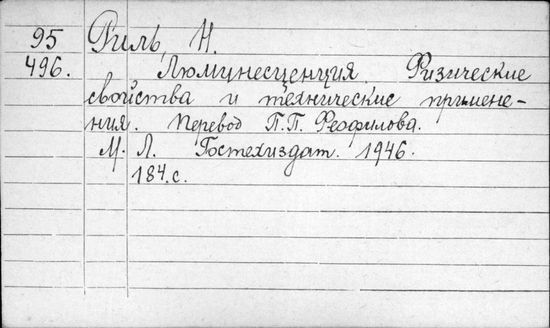 95 Риль, Н.
496. Люминесценция. Физические
свойства и технические примене-
ния. Перевод П.П. Феофилова.
М. Л. Гостехиздат. 1946.
184.с.